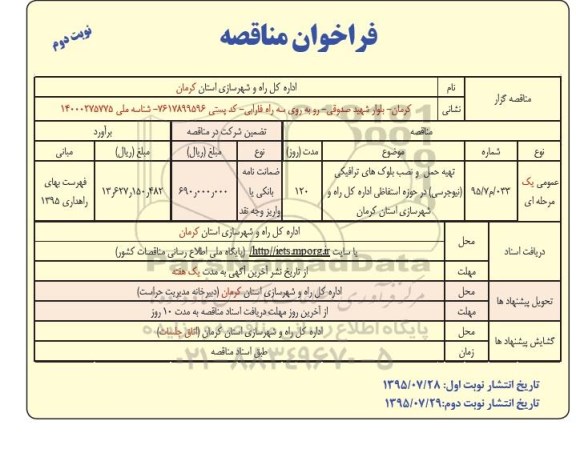 فراخوان مناقصه
نوبت دوم
مناقصه گزار
نام
اداره کل راه و شهرسازی استان کرمان
نشانی
کرمان- بلوار شهید صدوقی- رو به روی سه راه فارابی- کد پستی ۷۶۱۷۸۹۹۵۹۶- شناسه ملی ۱۴۰۰۰۲۷۵۷۷۵
مناقصه
تضمین شرکت در مناقصه
برآورد
نوع
شماره
موضوع
مدت (روز)
نوع
مبلغ (ریال)
مبلغ (ریال)
مبانی
عمومی یک مرحله ای
۹۵/۷/م/۰۳۳
تهیه حمل و نصب بلوک های ترافیکی
(نیوجرسی) در حوزه استفاظی اداره کل راه و
شهرسازی استان کرمان
۱۲۰
ضمانت نامه
بانکی یا
واریز وجه نقد
۶۹۰,۰۰۰,۰۰۰
۱۳,۶۲۷,۱۵۰,۴۸۲
فهرست بهای
راهداری ۱۳۹۵
دریافت اسناد
محل
اداره کل راه و شهرسازی استان کرمان
یا سایت http://iets.mporg.ir (پایگاه ملی اطلاع رسانی مناقصات کشور)
مهلت
از تاریخ نشر آخرین آگهی به مدت یک هفته
تحویل پیشنهاد ها
محل
اداره کل راه و شهرسازی استان کرمان (دبیرخانه مدیریت حراست)
مهلت
از آخرین روز مهلت دریافت اسناد مناقصه به مدت ۱۰ روز
گشایش پیشنهاد ها
محل
اداره کل راه و شهرسازی استان کرمان (اتاق جلسات)
زمان
طبق اسناد مناقصه
ParsNamadData
پایگاه اطلاع رسانی
۰۲۱-۸۸۳۴۹۶۷۰-۵
تاریخ انتشار نوبت اول: ۱۳۹۵/۰۷/۲۸
تاریخ انتشار نوبت دوم:۱۳۹۵/۰۷/۲۹